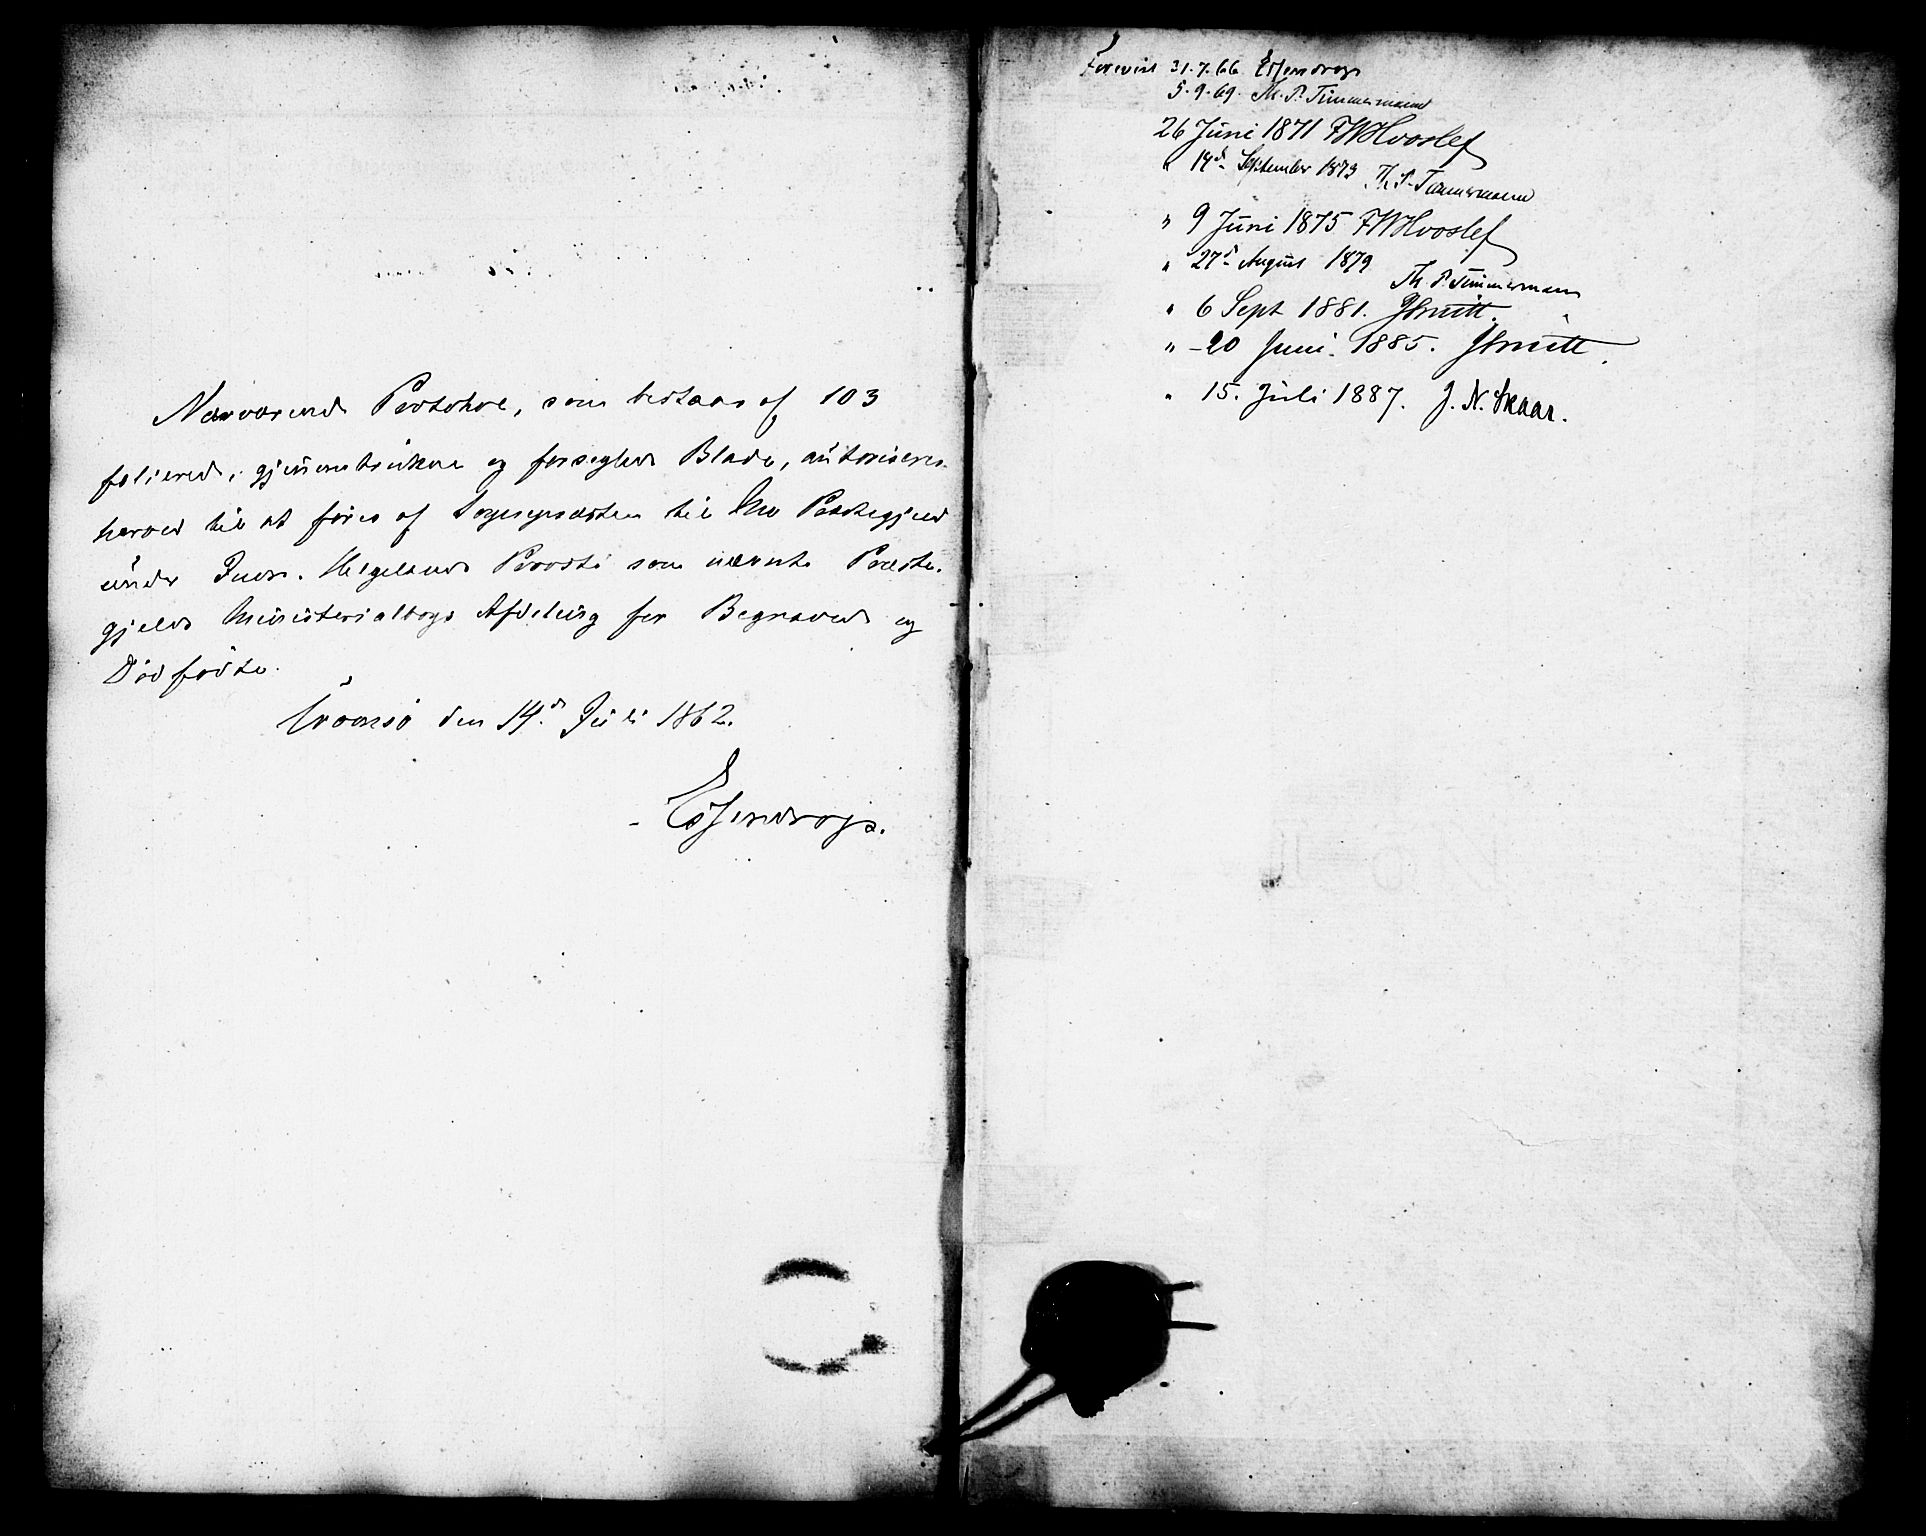 Nærværende Protokol, som bestaar af 103
folierede, gjennemtrukne og forseglede Blade, autoriseres
herved til at føres af Sognepræsten til Mo Præstegjeld
under Indre Helgelands Provsti som nævnte Præste-
gjelds Ministerialbogs Afdeling for Begravede og
Dødfødte.
Tromsø den 14.d Juli 1862.
Essendrop.
Forevist 31.7.66. Essendrop
5.9.69. Th. P. Timmermann
26 Juni 1871 FWHvoslef
" 14d September 1873 Th. P. Timmermann
" 9 Juni 1875 FWHvoslef
" 27d August 1879 Th. P. Timmermann
" 6 Sept 1881. JSmitt.
" 20 Juni 1885. JSmitt.
" 15. Juli 1887. J. N. Skaar.